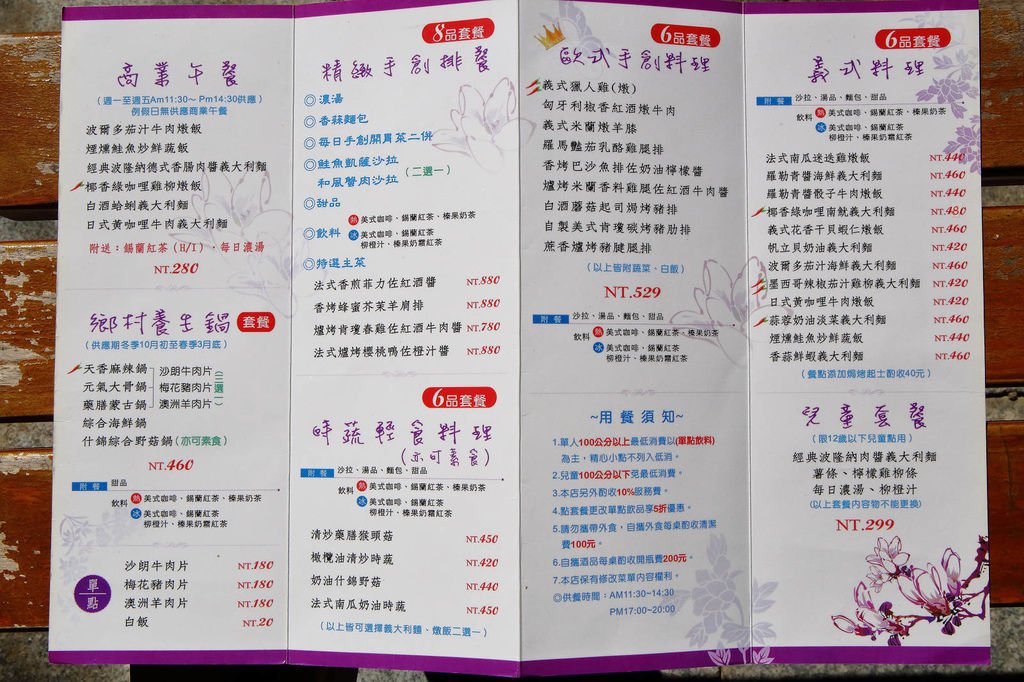 商業午餐
(週一至週五Am11:30~ Pm14:30供應)
例假日無供應商業午餐
波爾多茄汁牛肉燉飯
煙燻鮭魚炒鮮蔬飯
經典波隆納德式香腸肉醬義大利麵
椰香綠咖哩雞柳燉飯
白酒蛤蜊義大利麵
日式黃咖哩牛肉義大利麵
附送：錫蘭紅茶(H/I)．每日濃湯
NT.280
鄉村養生鍋 套餐
(供應期冬季10月初至春季3月底)
天香麻辣鍋
元氣大骨鍋
藥膳蒙古鍋
沙朗牛肉片
梅花豬肉片
澳洲羊肉片
(三選一)
綜合海鮮鍋
什錦綜合野菇鍋(亦可素食)
NT.460
附餐 甜品
飲料 熱 美式咖啡、錫蘭紅茶、榛果奶茶
冰 美式咖啡、錫蘭紅茶
柳橙汁、榛果奶霜紅茶
單點
沙朗牛肉片 NT.180
梅花豬肉片 NT.180
澳洲羊肉片 NT.180
白飯 NT.20
8品套餐
精緻手創排餐
◎濃湯
◎香蒜麵包
◎每日手創開胃菜二併
◎鮭魚凱薩沙拉
和風醬肉沙拉 (二選一)
◎甜品
◎飲料 熱 美式咖啡、錫蘭紅茶、榛果奶茶
冰 美式咖啡、錫蘭紅茶
柳橙汁、榛果奶霜紅茶
◎特選主菜
法式香煎菲力佐紅酒醬 NT.880
香烤蜂蜜芥茉羊肩排 NT.880
爐烤肯瓊春雞佐紅酒牛肉醬 NT.780
法式爐烤櫻桃鴨佐橙汁醬 NT.880
6品套餐
時蔬輕食料理
(亦可素食)
附餐 沙拉、湯品、麵包、甜品
飲料 熱 美式咖啡、錫蘭紅茶、榛果奶茶
冰 美式咖啡、錫蘭紅茶
柳橙汁、榛果奶霜紅茶
清炒藥膳猴頭菇 NT.450
橄欖油清炒時蔬 NT.420
奶油什錦野菇 NT.440
法式南瓜奶油時蔬 NT.450
(以上皆可選擇義大利麵、燉飯二選一)
6品套餐
歐式手創料理
義式獵人雞(燉)
匈牙利椒香紅酒燉牛肉
義式米蘭燉羊膝
羅馬豔茄乳酪雞腿排
香烤巴沙魚排佐奶油檸檬醬
爐烤米蘭香料雞腿佐紅酒牛肉醬
白酒蘑菇起司焗烤豬排
自製美式肯瓊碳烤豬肋排
蔗香爐烤豬腱腿排
(以上皆附蔬菜、白飯)
NT.529
附餐 沙拉、湯品、麵包、甜品
飲料 熱 美式咖啡、錫蘭紅茶、榛果奶茶
冰 美式咖啡、錫蘭紅茶
柳橙汁、榛果奶霜紅茶
~用餐須知~
1.單人100公分以上最低消費以(單點飲料)
為主，精心小點不列入低消。
2.兒童100公分以下免最低消費。
3.本店另外酌收10%服務費。
4.點套餐更改單點飲品享5折優惠。
5.請勿攜帶外食，自攜外食每桌酌收清潔
費100元。
6.自攜酒品每桌酌收開瓶費200元。
7.本店保有修改菜單內容權利。
◎供餐時間：AM11:30~14:30
PM17:00~20:00
6品套餐
義式料理
附餐 沙拉、湯品、麵包、甜品
飲料 熱 美式咖啡、錫蘭紅茶、榛果奶茶
冰 美式咖啡、錫蘭紅茶
柳橙汁、榛果奶霜紅茶
法式南瓜迷迭雞燉飯 NT.440
羅勒青醬海鮮義大利麵 NT.460
羅勒青醬骰子牛肉燉飯 NT.440
椰香綠咖哩南魷義大利麵 NT.480
義式花香干貝蝦仁燉飯 NT.460
帆立貝奶油義大利麵 NT.420
波爾多茄汁海鮮義大利麵 NT.460
墨西哥辣椒茄汁雞柳義大利麵 NT.420
日式黃咖哩牛肉燉飯 NT.420
蒜蓉奶油淡菜義大利麵 NT.460
煙燻鮭魚炒鮮蔬飯 NT.440
香蒜鮮蝦義大利麵 NT.460
(餐點添加焗烤起士酌收40元)
兒童套餐
(限12歲以下兒童點用)
經典波隆納肉醬義大利麵
薯條、檸檬雞柳條
每日濃湯、柳橙汁
(以上套餐內容物不能更換)
NT.299